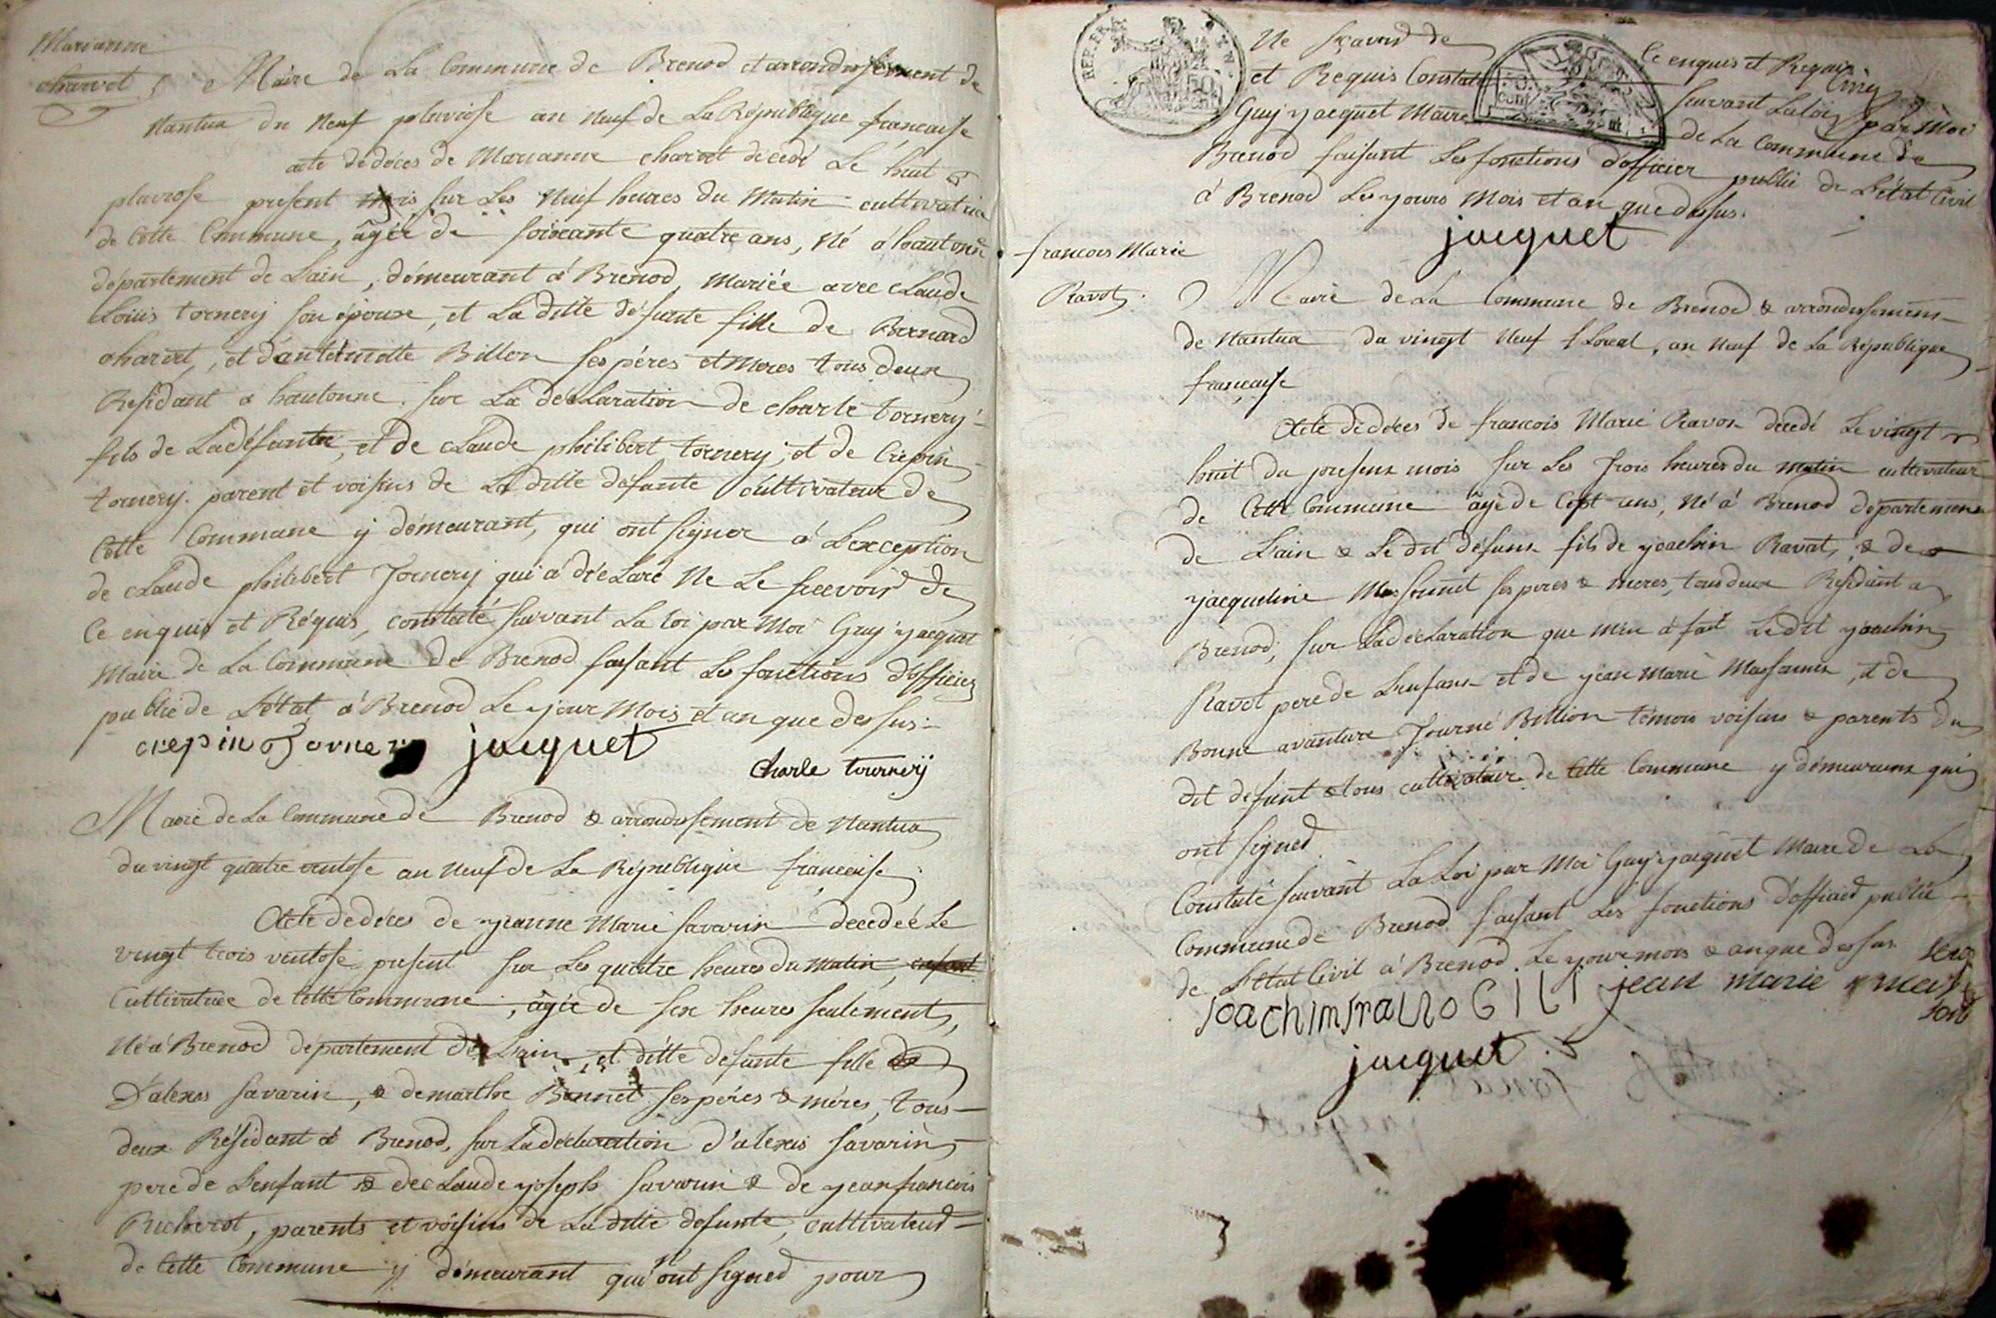 Marianne
charvet
Maire de La Commune de Brenod et arrondissement de
Nantua du Neuf pluviose an Neuf de La République francaise
acte dedéces de Marianne charvet décedé Le huit
pluviose present mois sur Les Neuf heures du Matin cultivatrice
de Cette Commune, âgée de soixante quatre ans, Né a hautonne
département de Lain, démeurant á Brenod, Mariée avec Claude
Louis tornery son épouse, et La ditte défunte fille de Bernard
charvet, et d'antelmette Billon ses péres et Meres tous deux
Résidant a hautonne. sur La déclaration de charle tornery
fils de Ladéfunte, et de Claude philibert tornery, et de Crepin
tornery. parent et voisins de La ditte défunte cultivateur de
Cette Commune y démeurant, qui ont signer á Lexception
de Claude philibert Tornery qui á déclaré Ne Le scevoir de
Ce enquis et Réquis, constaté suivant La loi par Moi Guy yacquet
Maire de La Commune de Brenod faisant Les fonctions d'officier
public de L'état á Brenod Le jour Mois et an que dessus.
crepin Torner jacquet
Charle tournery
Maire de La Commune de Brenod & arrondissement de Nantua
du vingt quatre ventose an Neuf de La République francaise
Acte dedéces de yeanne Marie Savarin decedeé Le
vingt trois ventose present sur Les quatre heures du Matin, enfant
Cultivatrice de Cette Commune, âgée de six heures seulement,
Né á Brenod département de Lain, et ditte defunte fille de
D'alexis Savarin, & de marthe Bonnet ses péres & méres, tous
deux Résidant á Brenod, sur La déclaration d'alexis Savarin
pere de L'enfant & de Claude yoseph Savarin & de yean francois
Pucheret, parents et voisins de La ditte defunte, cultivateur
de Cette Commune y démeurant qui n'ont signed pour
REP. FRA.
Ne sçavoir de Ce enquis et Requis
et Requis Constaté suivant La loi par Moi
Guy yacquet Maire de La Commune de
Brenod faisant Les fonctions d'officier public de L'état Civil
á Brenod Les yours Mois et an que dessus.
jacquet
francois Marie
Ravot
Mairie de La Commune de Brenod & arrondissement
de Nantua du vingt Neuf floreal, an Neuf de La République
française
Acte dedéces de francois Marie Ravot decedé Le vingt
huit du present mois sur Les trois heures du matin cultivateur
de Cette Commune âgé de Cept ans, Né á Brenod département
de Lain & Le dit défunt fils de yoachin Ravat, & de
yacqueline Massonnet ses peres & meres, tous deux Résidant a
Brenod, sur La déclaration que m'en á fait Le dit yoachin
Ravot pere de L'enfant et de yean Marie Massonnet, et de
Bonne avanture Tourné Billion témoin voisins & parents du
dit defunt & tous cultivateur de Cette Commune y démeurant qui
ont signed
Constaté suivant La Loi par Moi Guy yacquet Maire de La
Commune de Brenod faisant Les fonctions d'officied public
de L'état Civil á Brenod Le your mois & an que dessus
jean marie
jacquet